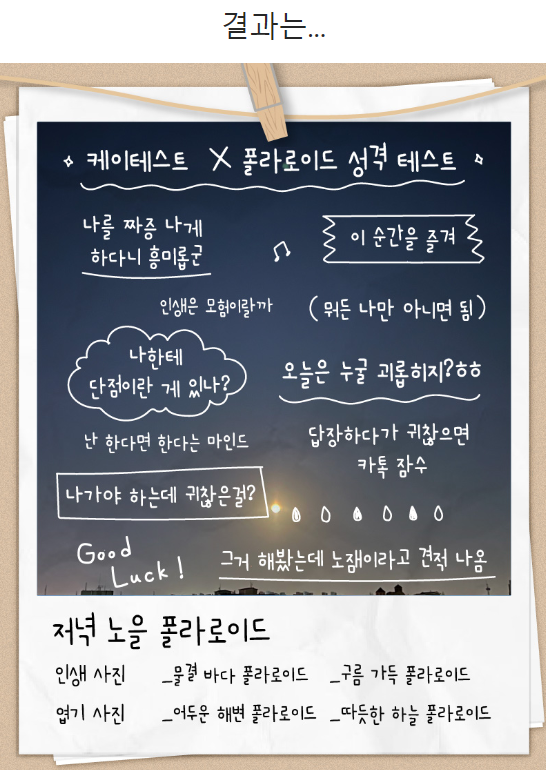 결과는...
케이테스트 X 폴라로이드 성격 테스트
나를 짜증 나게
하다니 흥미롭군
이 순간을 즐겨
인생은 모험이랄까
(뭐든 나만 아니면 됨)
나한테
단점이란 게 있나?
오늘은 누굴 괴롭히지?ㅎㅎ
난 한다면 한다는 마인드
답장하다가 귀찮으면
카톡 잠수
나가야 하는데 귀찮은걸?
Good
Luck!
그거 해봤는데 노잼이라고 견적 나옴
저녁 노을 폴라로이드
인생 사진 _물결 바다 폴라로이드 _구름 가득 폴라로이드
엽기 사진 _어두운 해변 폴라로이드 _따듯한 하늘 폴라로이드